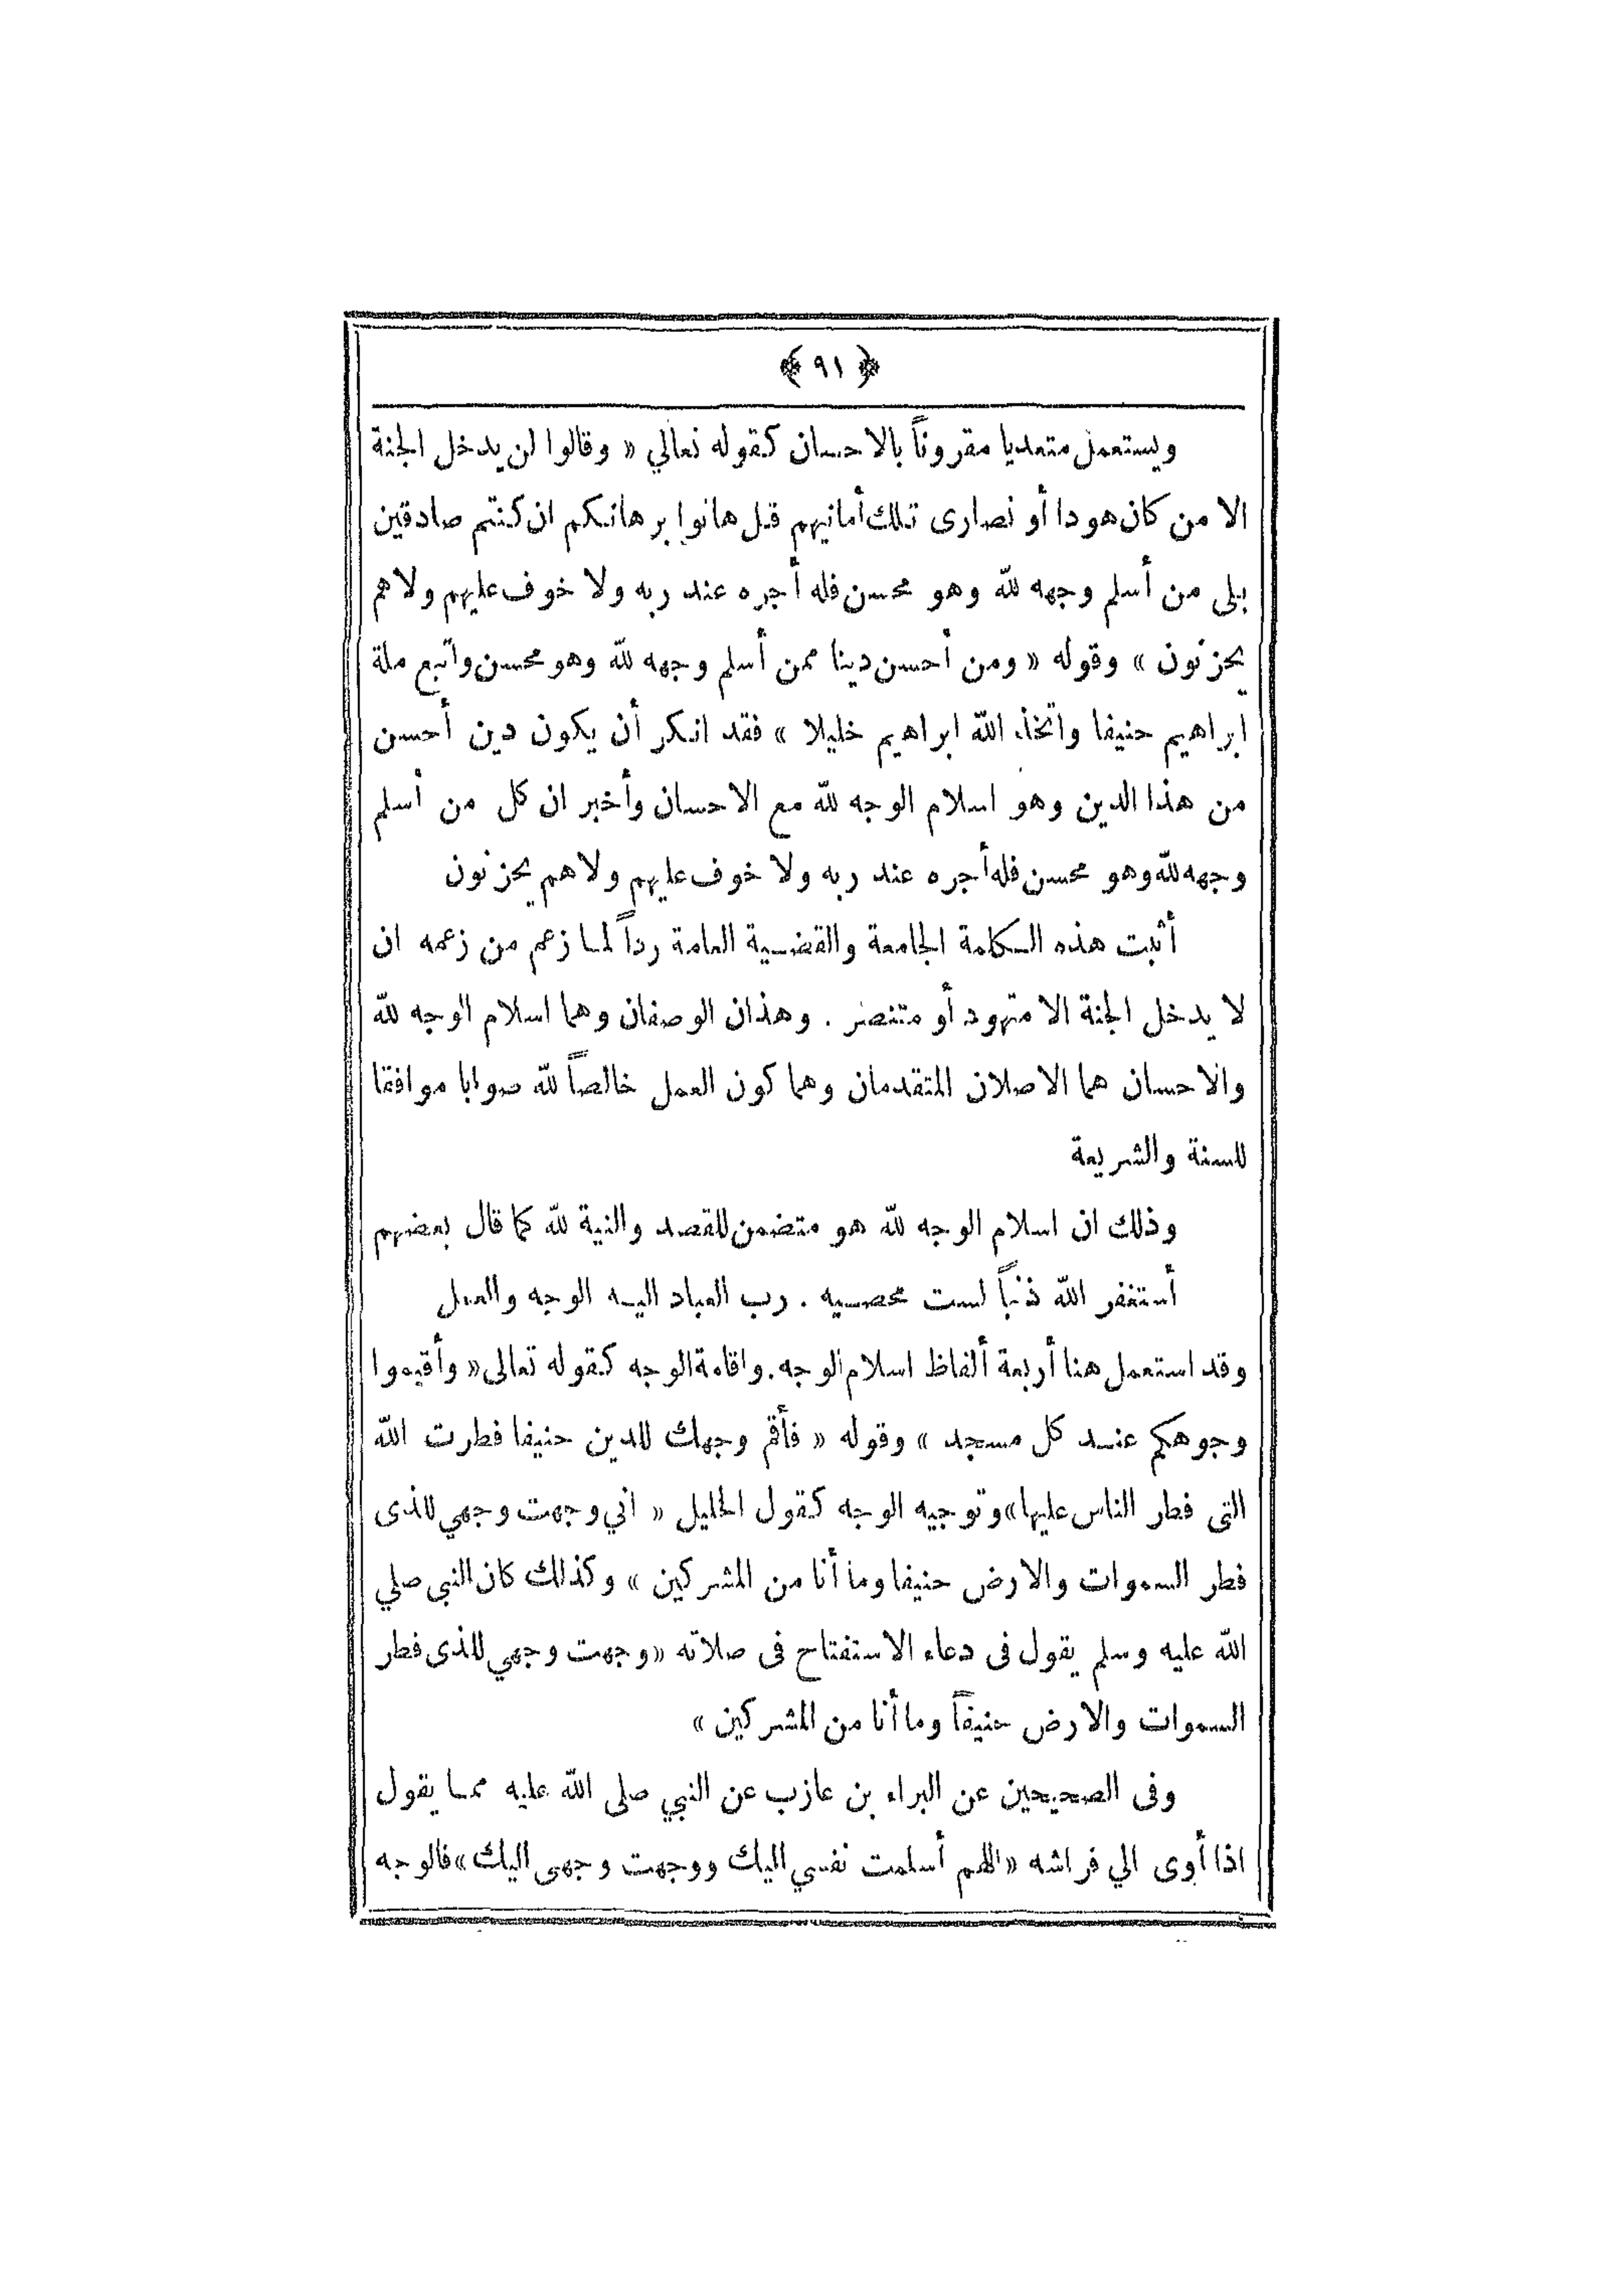 ﴿ ٩١ ﴾
ويستعمل متعديا مقروناً بالاحسان كقوله تعالي « وقالوا لن يدخل الجنة
الا من كان هودا أو نصارى تلك أمانيهم قل هاتوا برهانكم ان كنتم صادقين
بلى من أسلم وجهه لله وهو محسن فله أجره عند ربه ولا خوف عليهم ولا هم
يحزنون » وقوله « ومن أحسن دينا ممن أسلم وجهه لله وهو محسن واتبع ملة
ابراهيم حنيفا واتخذ الله ابراهيم خليلا » فقد انكر أن يكون دين أحسن
من هذا الدين وهو اسلام الوجه لله مع الاحسان وأخبر ان كل من أسلم
وجهه لله وهو محسن فله أجره عند ربه ولا خوف عليهم ولا هم يحزنون
أثبت هذه الكلمة الجامعة والقضية العامة رداً لما زعم من زعمه ان
لا يدخل الجنة الا متهود أو متنصر . وهذان الوصفان وهما اسلام الوجه لله
والاحسان هما الاصلان المتقدمان وهما كون العمل خالصاً لله صوابا موافقا
للسنة والشريعة
وذلك ان اسلام الوجه لله هو متضمن للقصد والنية لله كما قال بعضهم
أستغفر الله ذنباً لست محصيه . رب العباد اليه الوجه والعمل
وقد استعمل هنا أربعة ألفاظ اسلام الوجه . واقامة الوجه كقوله تعالى « وأقيموا
وجوهكم عند كل مسجد » وقوله « فأقم وجهك للدين حنيفا فطرت الله
التى فطر الناس عليها » وتوجيه الوجه كقول الخليل « اني وجهت وجهي للذى
فطر السموات والارض حنيفا وما أنا من المشركين » وكذلك كان النبي صلي
الله عليه وسلم يقول فى دعاء الاستفتاح فى صلاته « وجهت وجهي للذى فطر
السموات والارض حنيفاً وما أنا من المشركين »
وفى الصحيحين عن البراء بن عازب عن النبي صلى الله عليه مما يقول
اذا أوى الي فراشه « اللهم أسلمت نفسي اليك ووجهت وجهى اليك » فالوجه